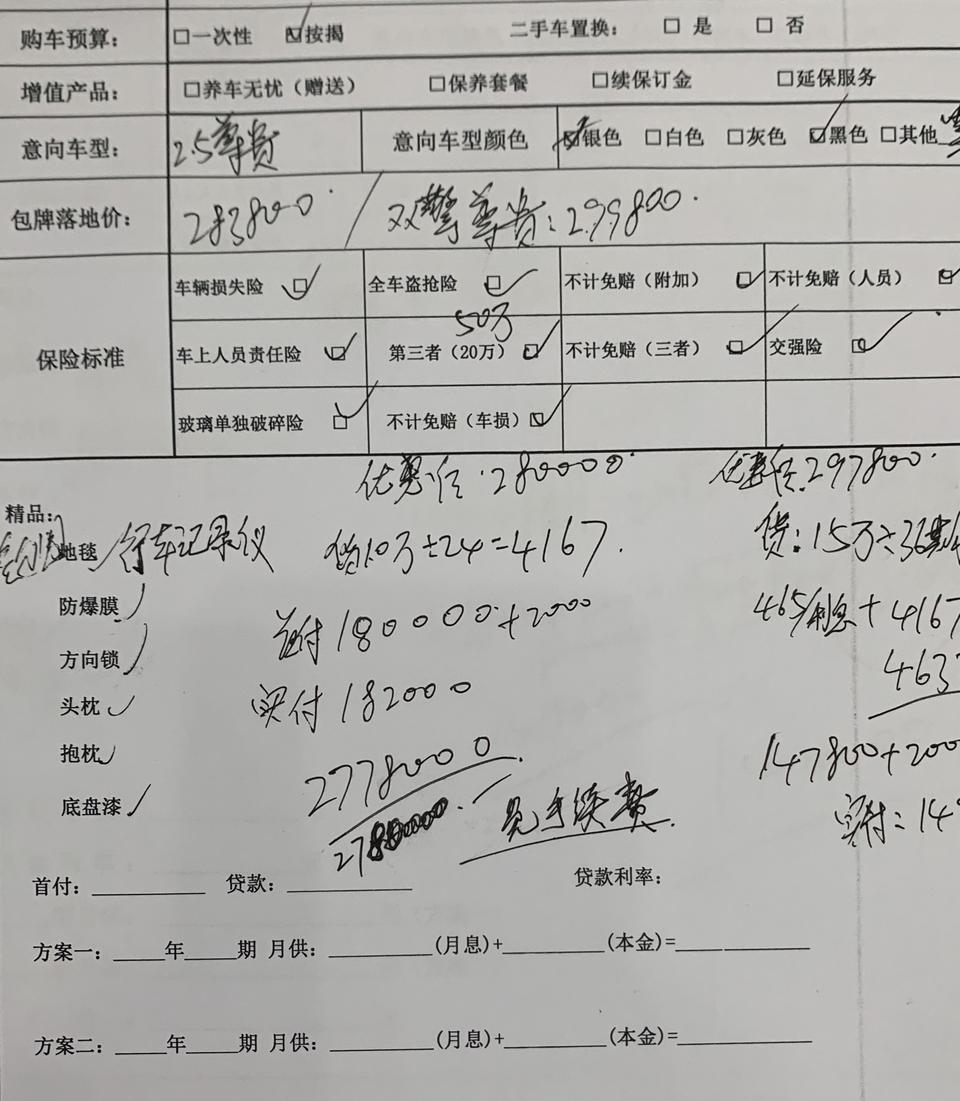 购车预算： □一次性 ☑按揭 二手车置换： □ 是 □ 否
增值产品： □养车无忧（赠送） □保养套餐 □续保订金 □延保服务
意向车型： 2.5尊贵 意向车型颜色 ☑银色 □白色 □灰色 ☑黑色 □其他
包牌落地价： 283800 / 双擎尊贵：299800.
保险标准
车辆损失险 ☑ 全车盗抢险 ☑ 不计免赔（附加） ☑ 不计免赔（人员） ☑
50万
车上人员责任险 ☑ 第三者（20万） ☑ 不计免赔（三者） ☑ 交强险 ☑
玻璃单独破碎险 ☑ 不计免赔（车损） ☑
优惠价.280000. 优惠价.297800.
精品：
地毯 行车记录仪 贷10万÷24=4167. 贷：15万÷36期
防爆膜 首付180000+2000 465/利息+4167
方向锁 463
头枕 实付182000
抱枕 277800 0 147800+200
底盘漆 278000. 免手续费. 实付：14
首付：_____ 贷款：_____ 贷款利率：
方案一：_____年_____期 月供：_____(月息)+_____(本金)=_____
方案二：_____年_____期 月供：_____(月息)+_____(本金)=_____